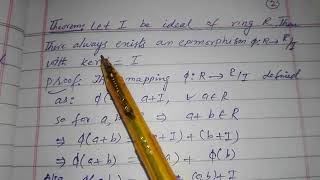 (2)
Theorem: Let I be ideal of ring R. Then
there always exists an epimorphism ϕ: R → R/I
with ker = I
Proof: The mapping ϕ: R → R/I defined
as: ϕ( a+I, ∀ a∈R
so for a, ⇒ a+b ∈ R
⇒ ϕ(a+b) = +I) + (b+I)
⇒ ϕ(a+b) = ) + ϕ(b)